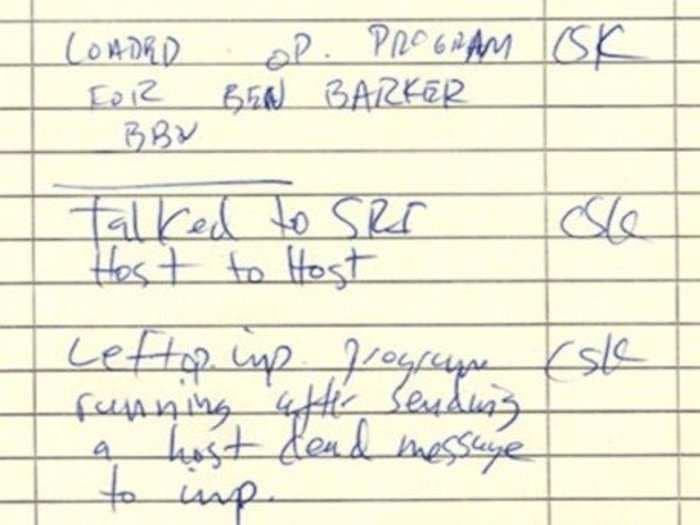 LOADED OP. PROGRAM CSK
FOR BEN BARKER
BBN
Talked to SRI CSK
Host to Host
Left op. imp. program CSK
running after sending
a host dead message
to imp.